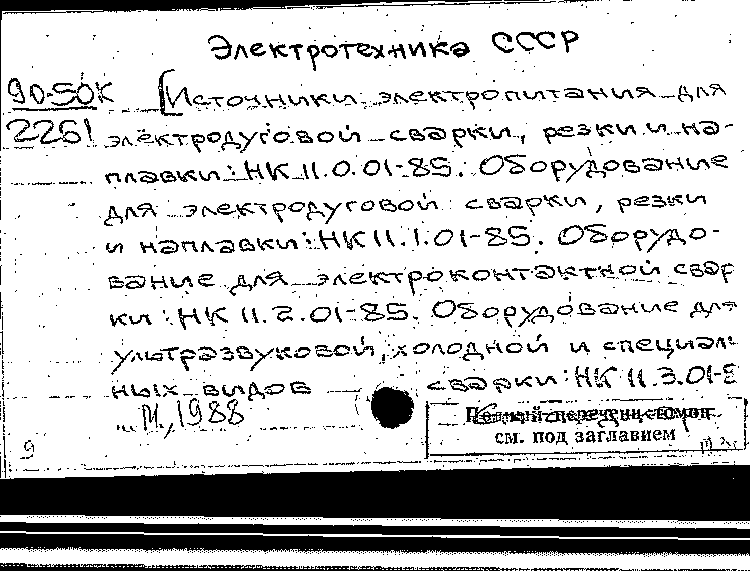 Электротехника СССР
90-50К [Источники электропитания для
2251 электродуговой сварки, резки и на-
плавки: НК 11.0.01-85. Оборудование
для электродуговой сварки, резки
и наплавки: НК 11.1.01-85. Оборудо-
вание для электроконтактной свар
ки: НК 11.2.01-85. Оборудование для
ультразвуковой, холодной и специал
ных видов сварки: НК 11.3.01-8
... М., 1988
Полный перечень томов
см. под заглавием
9